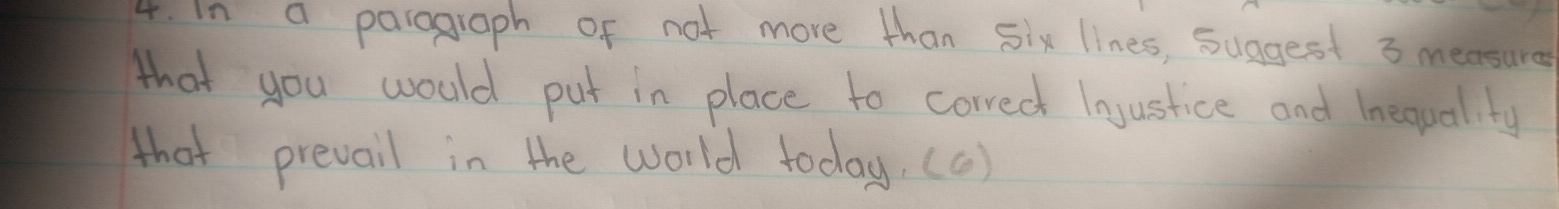 4. In a paragraph of not more than six lines, Suggest 3 measures
that you would put in place to correct Injustice and Inequality
that prevail in the world today. (6)